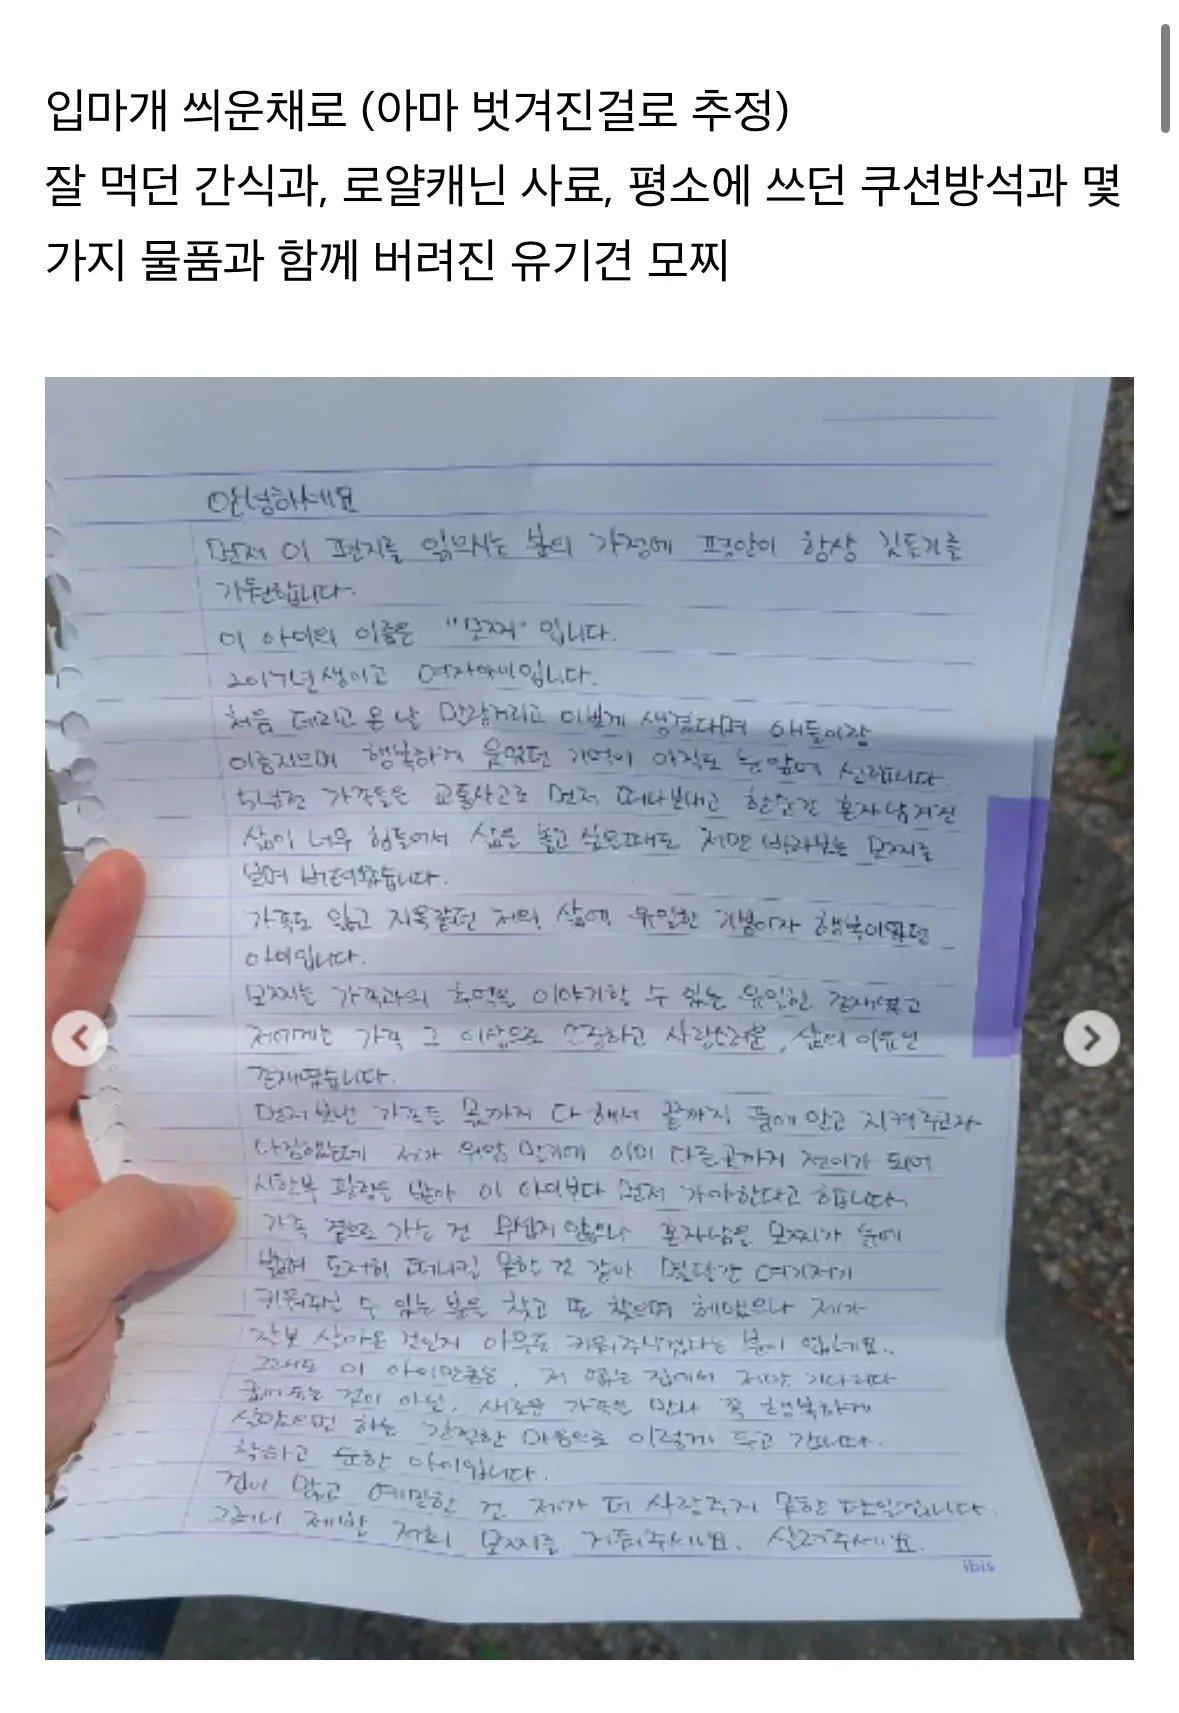 입마개 씌운채로 (아마 벗겨진걸로 추정)
잘 먹던 간식과, 로얄캐닌 사료, 평소에 쓰던 쿠션방석과 몇
가지 물품과 함께 버려진 유기견 모찌
안녕하세요
먼저 이 편지를 읽으시는 분의 가정에 평안이 항상 깃들기를
기원합니다.
이 아이의 이름은 "모찌" 입니다.
2017년생이고 여자아이입니다.
처음 데리고 온 날 말랑거리고 이쁘게 생겼다며 애들이랑
이름지으며 행복하게 웃었던 기억이 아직도 눈앞에 선합니다.
5년전 가족들을 교통사고로 먼저 떠나보내고 한순간 혼자남겨진
삶이 너무 힘들어서 삶을 놓고 싶을때도 저만 바라보는 모찌를
보며 버텨왔습니다.
가족도 잃고 지옥같던 저의 삶에 유일한 기쁨이자 행복이였던
아이입니다.
모찌는 가족과의 추억을 이야기할 수 있는 유일한 존재였고
저에게는 가족 그 이상으로 소중하고 사랑스러운, 삶의 이유인
존재였습니다.
먼저보낸 가족들 몫까지 다 해서 끝까지 품에 안고 지켜주고자
다짐했는데 제가 위암 말기에 이미 다른곳까지 전이가 되어
시한부 판정을 받아 이 아이보다 먼저 가야한다고 합니다.
가족 곁으로 가는 건 무섭지 않으나 혼자남을 모찌가 눈에
밟혀 도저히 떠나질 못할 것 같아 몇달간 여기저기
키워주실 수 있는 분을 찾고 또 찾으며 헤맸으나 제가
잘못 살아온 것인지 아무도 키워주시겠다는 분이 없네요..
그래도 이 아이만큼은, 저 없는 집에서 저만 기다리다
굶어죽는 것이 아닌, 새로운 가족을 만나 꼭 행복하게
살았으면 하는 간절한 마음으로 이렇게 두고 갑니다.
착하고 순한 아이입니다.
겁이 많고 예민한 건 제가 더 사랑주지 못한 탓입니다.
그러니 제발 저희 모찌를 거둬주세요. 살려주세요.
ibis